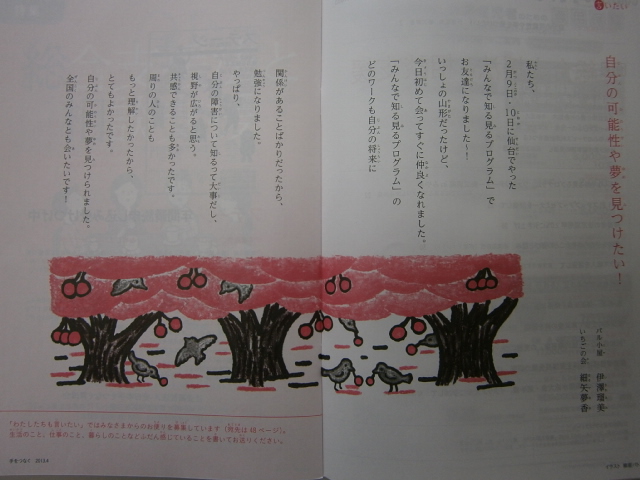 いたい
自分の可能性や夢を見つけたい！
私たち、
2月9日・10日に仙台でやった
「みんなで知る見るプログラム」で
お友達になりました〜！
いっしょの山形だったけど、
今日初めて会ってすぐに仲良くなれました。
「みんなで知る見るプログラム」の
どのワークも自分の将来に
関係があることばかりだったから、
勉強になりました。
やっぱり、
自分の障害について知るって大事だし、
視野が広がると思う。
共感できることも多かったです。
周りの人のことも
もっと理解したかったから、
とてもよかったです。
自分の可能性や夢を見つけられました。
全国のみんなとも会いたいです！
「わたしたちも言いたい」ではみなさまからのお便りを募集しています（宛先は48ページ）。
生活のこと、仕事のこと、暮らしのことなどふだん感じていることを書いてお送りください。
手をつなぐ 2013.4